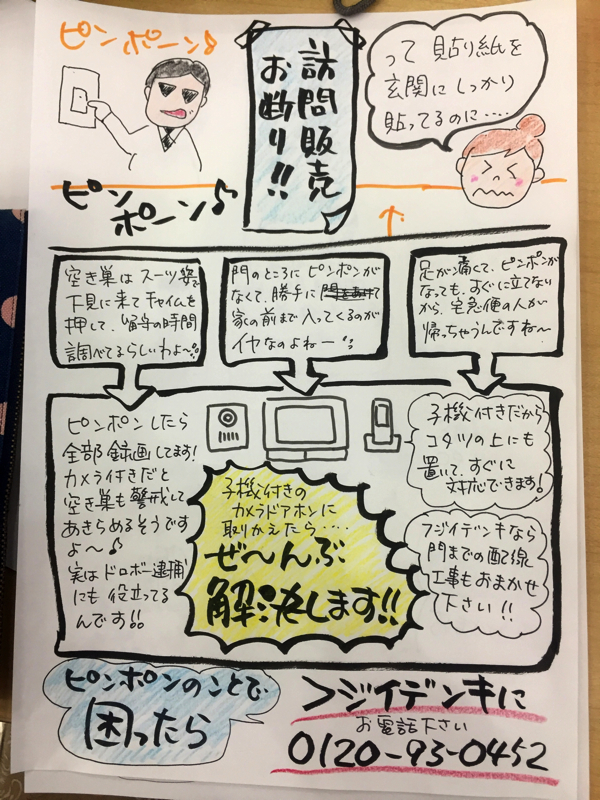 ピンポーン♪
訪問販売
お断り!!
って貼り紙を
玄関にしっかり
貼ってるのに‥‥
ピン
ポーン♪
空き巣はスーツ姿で
下見に来てチャイムを
押して、留守の時間
調べてるらしいわよ〜
門のところにピンポンが
なくて、勝手に
家の前まで入ってくるのが
イヤなのよねー
足が痛くて、ピンポンが
なっても、すぐに立てない
から、宅急便の人が
帰っちゃうんですね〜
ピンポンしたら
全部録画してます!
カメラ付きだと
空き巣も警戒して
あきらめるそうです
よ〜♪
実はドロボー逮捕
にも役立ってる
んです!!
子機付きの
カメラドアホンに
取りかえたら‥‥
ぜ〜んぶ
解決します!!
子機付きだから
コタツの上にも
置いて、すぐに
対応できます!
フジイデンキなら
門までの配線
工事もおまかせ
下さい!!
ピンポンのことで
困ったら
フジイデンキに
お電話下さい
0120-93-0452